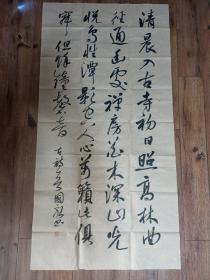 清晨入古寺初日照高林曲
径通幽处禅房花木深山光
悦鸟性潭影空人心万籁此俱
寂但余钟磬音